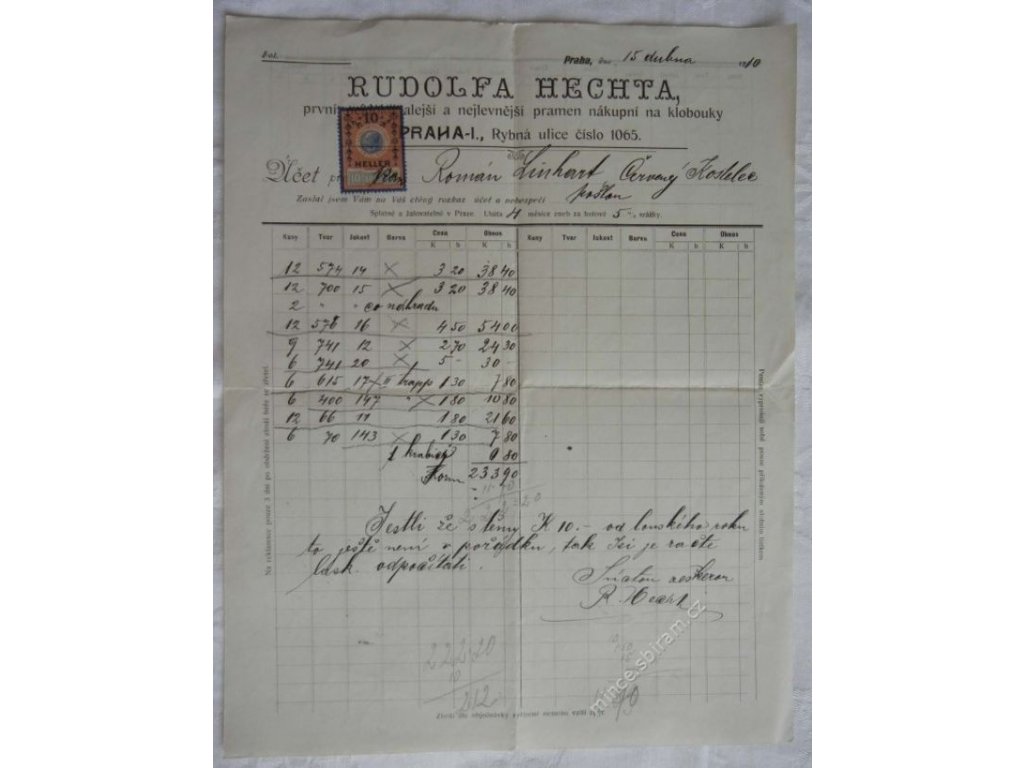 Praha, dne 15 dubna 1910
RUDOLFA HECHTA,
první nejstalejší a nejlevnější pramen nákupní na klobouky
PRAHA-I., Rybná ulice číslo 1065.
10
HELLER
Účet pro pana Román Linhart Červený Kostelec
poštou
Zaslal jsem Vám na Váš ctěný rozkaz účet a nebezpečí
Splatné a žalovatelné v Praze. Lhůta 4 měsíce aneb za hotové 5 % srážky.
Kusy Tvar Jakost Barva Cena Obnos Kusy Tvar Jakost Barva Cena Obnos
K h K h K h K h
12 574 14 X 3 20 38 40
12 700 15 X 3 20 38 40
2 " " co náhradu
12 576 16 X 4 50 54 00
9 741 12 X 2 70 24 30
6 741 20 X 5 - 30 -
6 615 17 X 1 30 7 80
6 400 147 " X 1 80 10 80
12 66 11 1 80 21 60
6 70 143 X 1 30 7 80
1 80
Korun 233 90
Jestli že s těmy K 10.- od loňského roku
to ještě není v pořádku, tak si je račte
lask. odpočítati.
R. Hecht
222 20
10
212
Na reklamace pouze 3 dní po obdržení zboží beru se zřetel.
mince.sbiram.cz